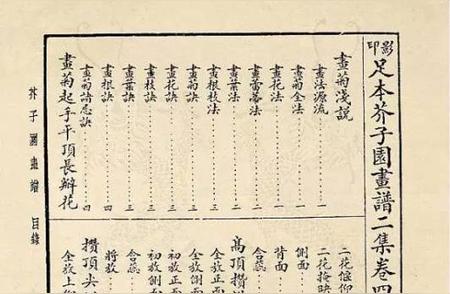 影印
足本芥子園畫譜二集卷四
畫菊淺說
畫法源流……一
畫菊全法……一
畫花法……一
畫蕾蒂法……一
畫葉法……二
畫根枝法……二
畫菊訣……三
畫花訣……三
畫枝訣……三
畫葉訣……三
畫根訣……四
畫菊諸忌訣……四
畫菊起手平頂長瓣花
二花偃仰
二花掩映
側面
背面
含蕊
高頂攢
全放正面
全放側面
初放正面
初放側面
含蕊
將放
攢頂尖
全放上
芥子園畫譜 目錄